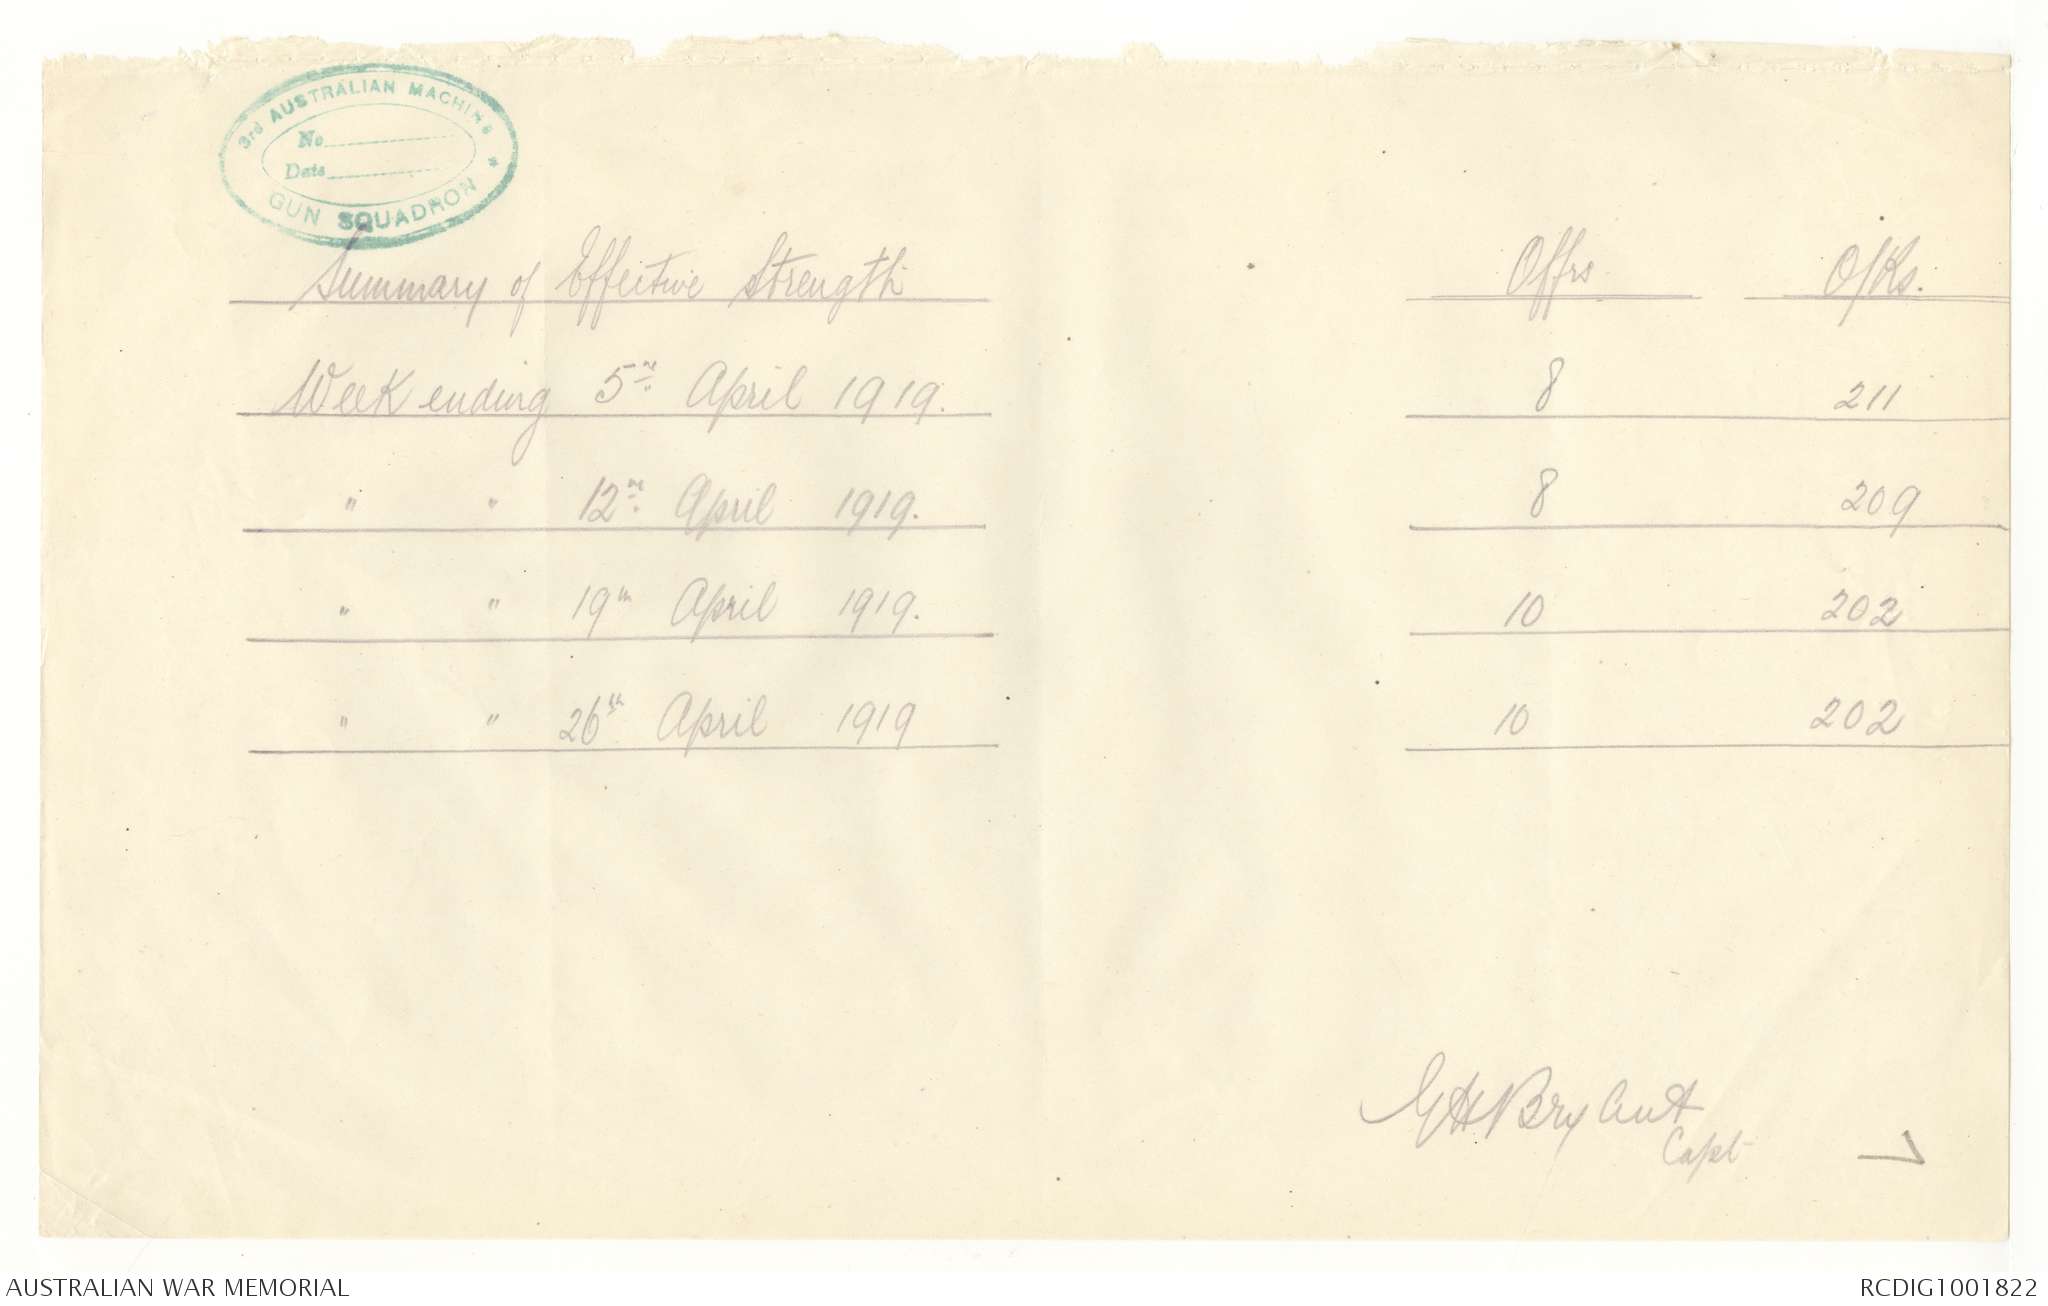 3rd AUSTRALIAN MACHINE
No
Date
GUN SQUADRON *
Summary of Effective Strength Offrs O/Rs.
Week ending 5th April 1919. 8 211
" " 12th April 1919. 8 209
" " 19th April 1919. 10 202
" " 26th April 1919 10 202
GHBryant
Capt
AUSTRALIAN WAR MEMORIAL RCDIG1001822